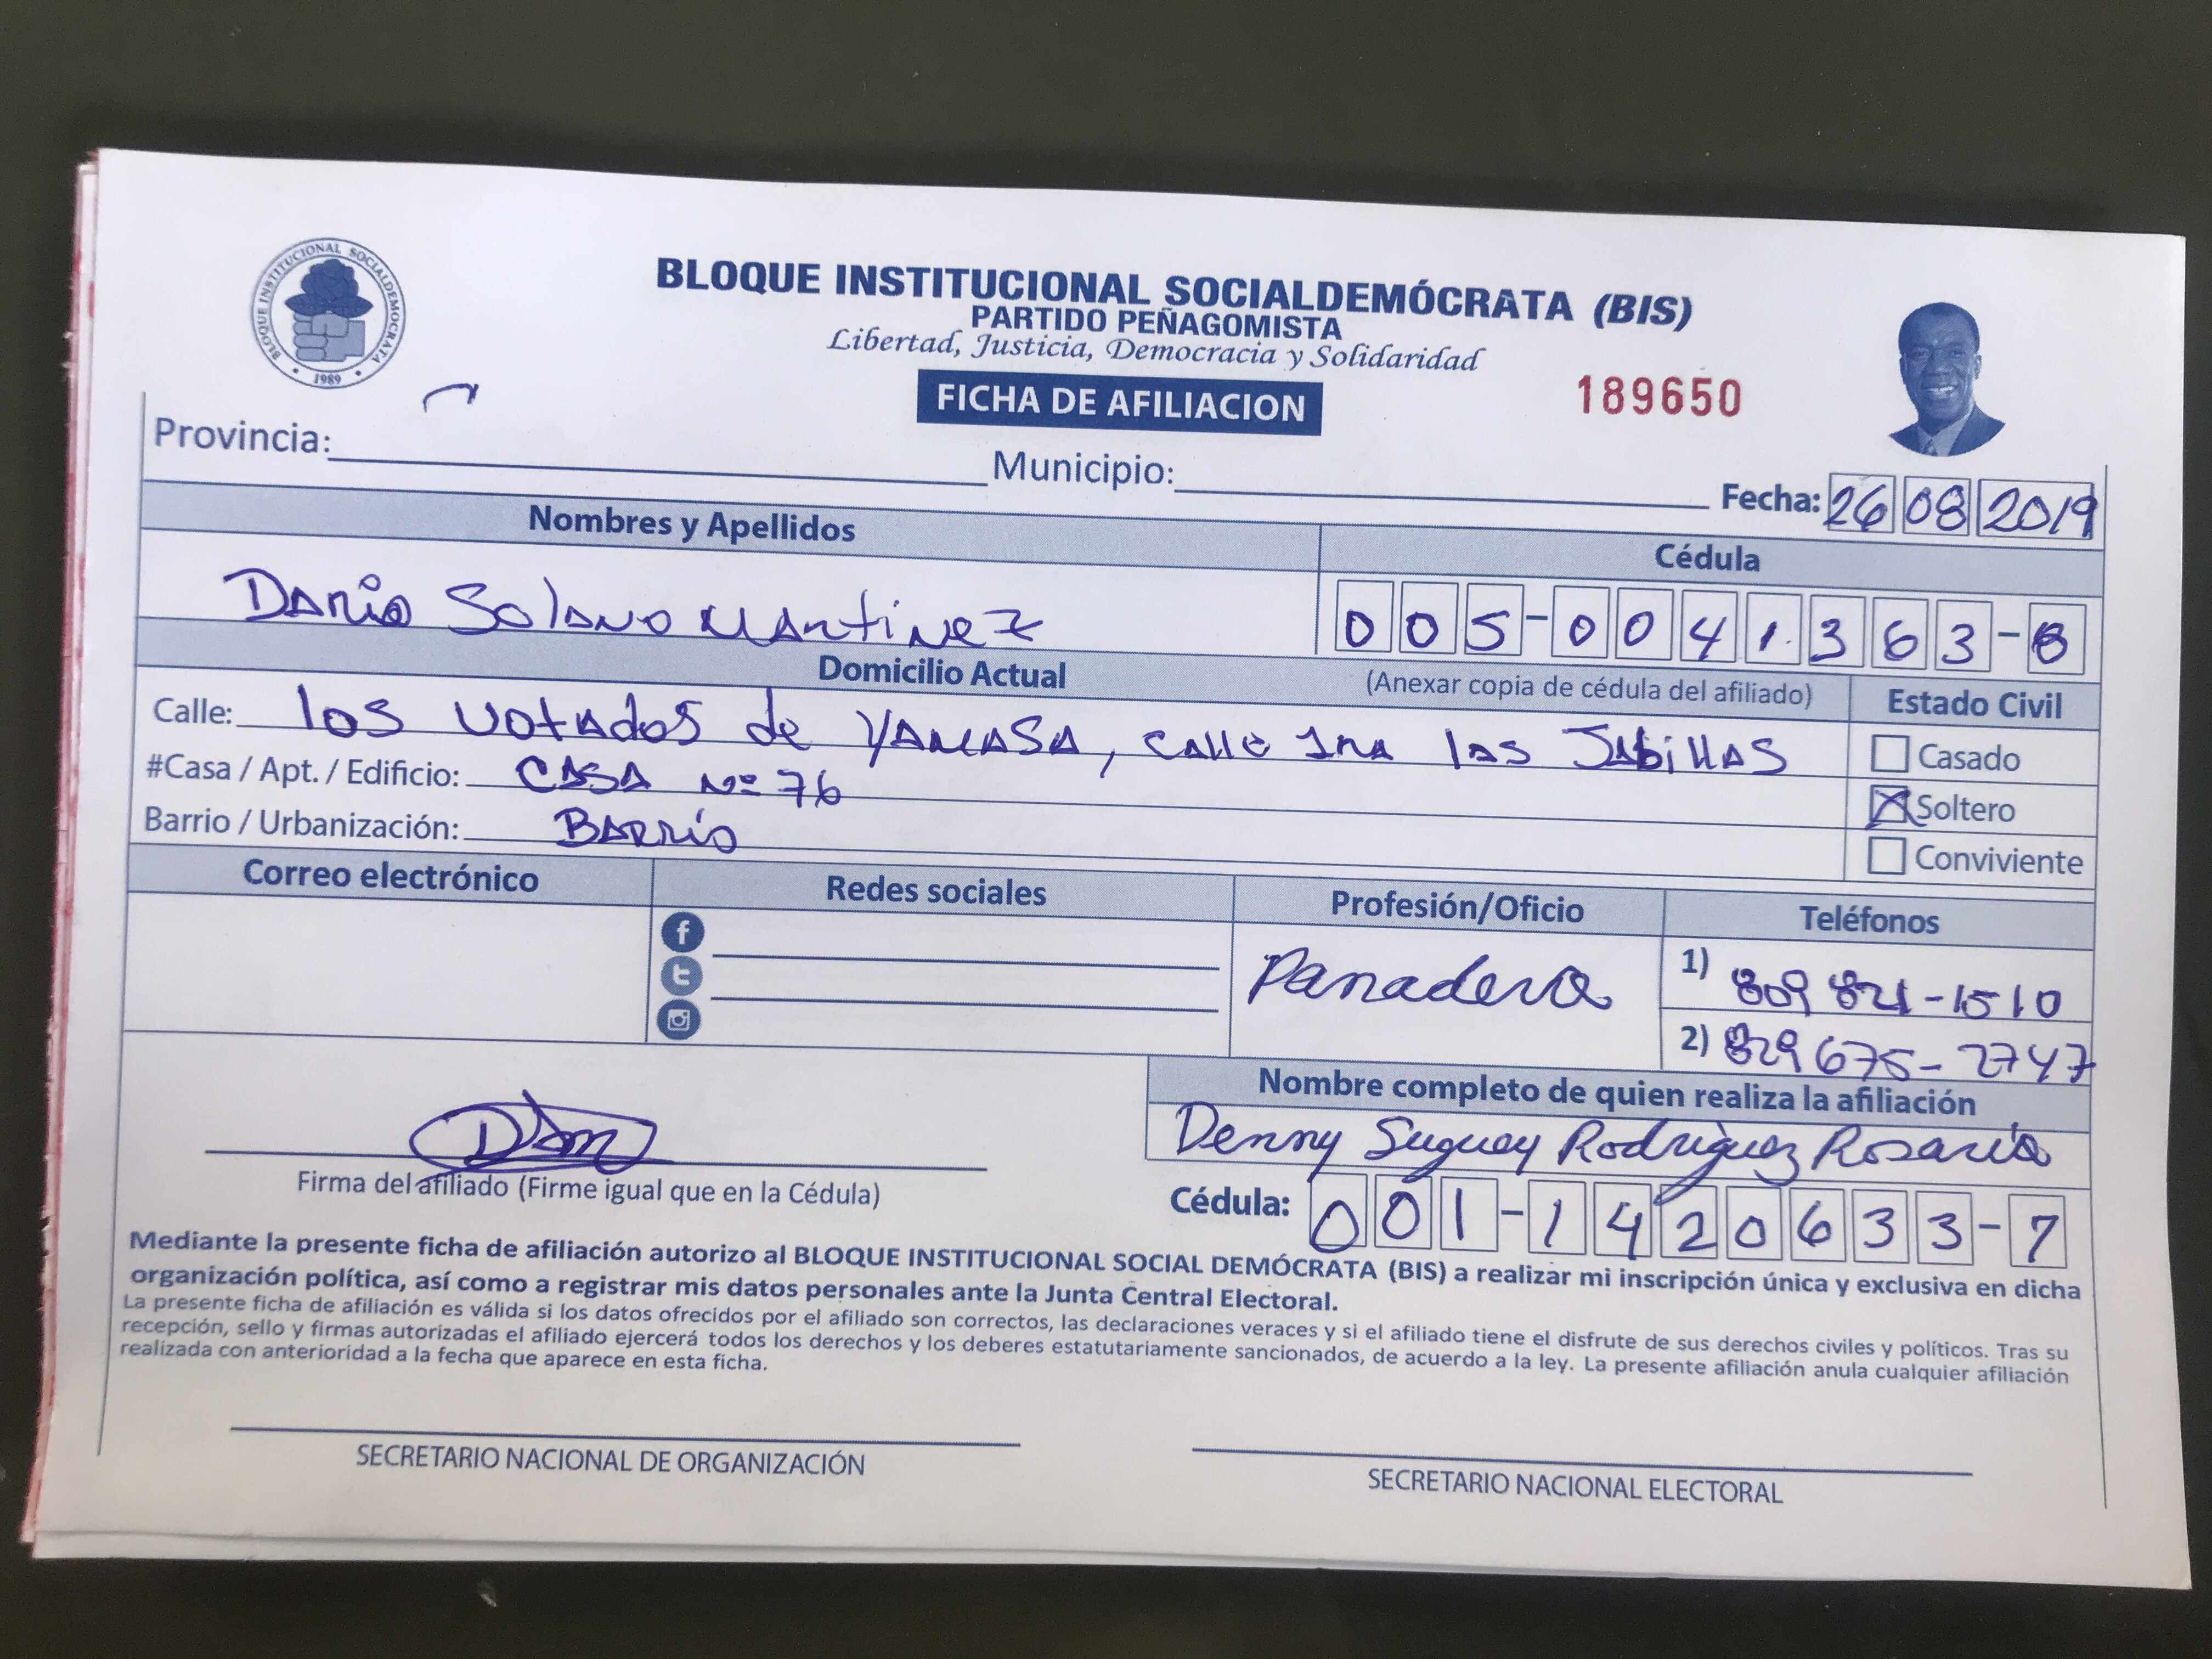 BLOQUE INSTITUCIONAL SOCIALDEMOCRATA
• 1989 •
BLOQUE INSTITUCIONAL SOCIALDEMÓCRATA (BIS)
PARTIDO PEÑAGOMISTA
Libertad, Justicia, Democracia y Solidaridad
FICHA DE AFILIACION
189650
Provincia: Municipio: Fecha: 26 08 2019
Nombres y Apellidos Cédula
Dario Solano Martinez 005-0041363-8
Domicilio Actual (Anexar copia de cédula del afiliado) Estado Civil
Calle: los votados de YAMASA, calle 1ra las Jabillas
Casado
#Casa / Apt. / Edificio: CASA Nº 76
Soltero
Barrio / Urbanización: Barrio
Conviviente
Correo electrónico Redes sociales Profesión/Oficio Teléfonos
Panadero
1) 809 821-1510
2) 829 675-2747
Nombre completo de quien realiza la afiliación
Denny Suguey Rodríguez Rosario
Firma del afiliado (Firme igual que en la Cédula)
Cédula: 001-1420633-7
Mediante la presente ficha de afiliación autorizo al BLOQUE INSTITUCIONAL SOCIAL DEMÓCRATA (BIS) a realizar mi inscripción única y exclusiva en dicha
organización política, así como a registrar mis datos personales ante la Junta Central Electoral.
La presente ficha de afiliación es válida si los datos ofrecidos por el afiliado son correctos, las declaraciones veraces y si el afiliado tiene el disfrute de sus derechos civiles y políticos. Tras su
recepción, sello y firmas autorizadas el afiliado ejercerá todos los derechos y los deberes estatutariamente sancionados, de acuerdo a la ley. La presente afiliación anula cualquier afiliación
realizada con anterioridad a la fecha que aparece en esta ficha.
SECRETARIO NACIONAL DE ORGANIZACIÓN
SECRETARIO NACIONAL ELECTORAL